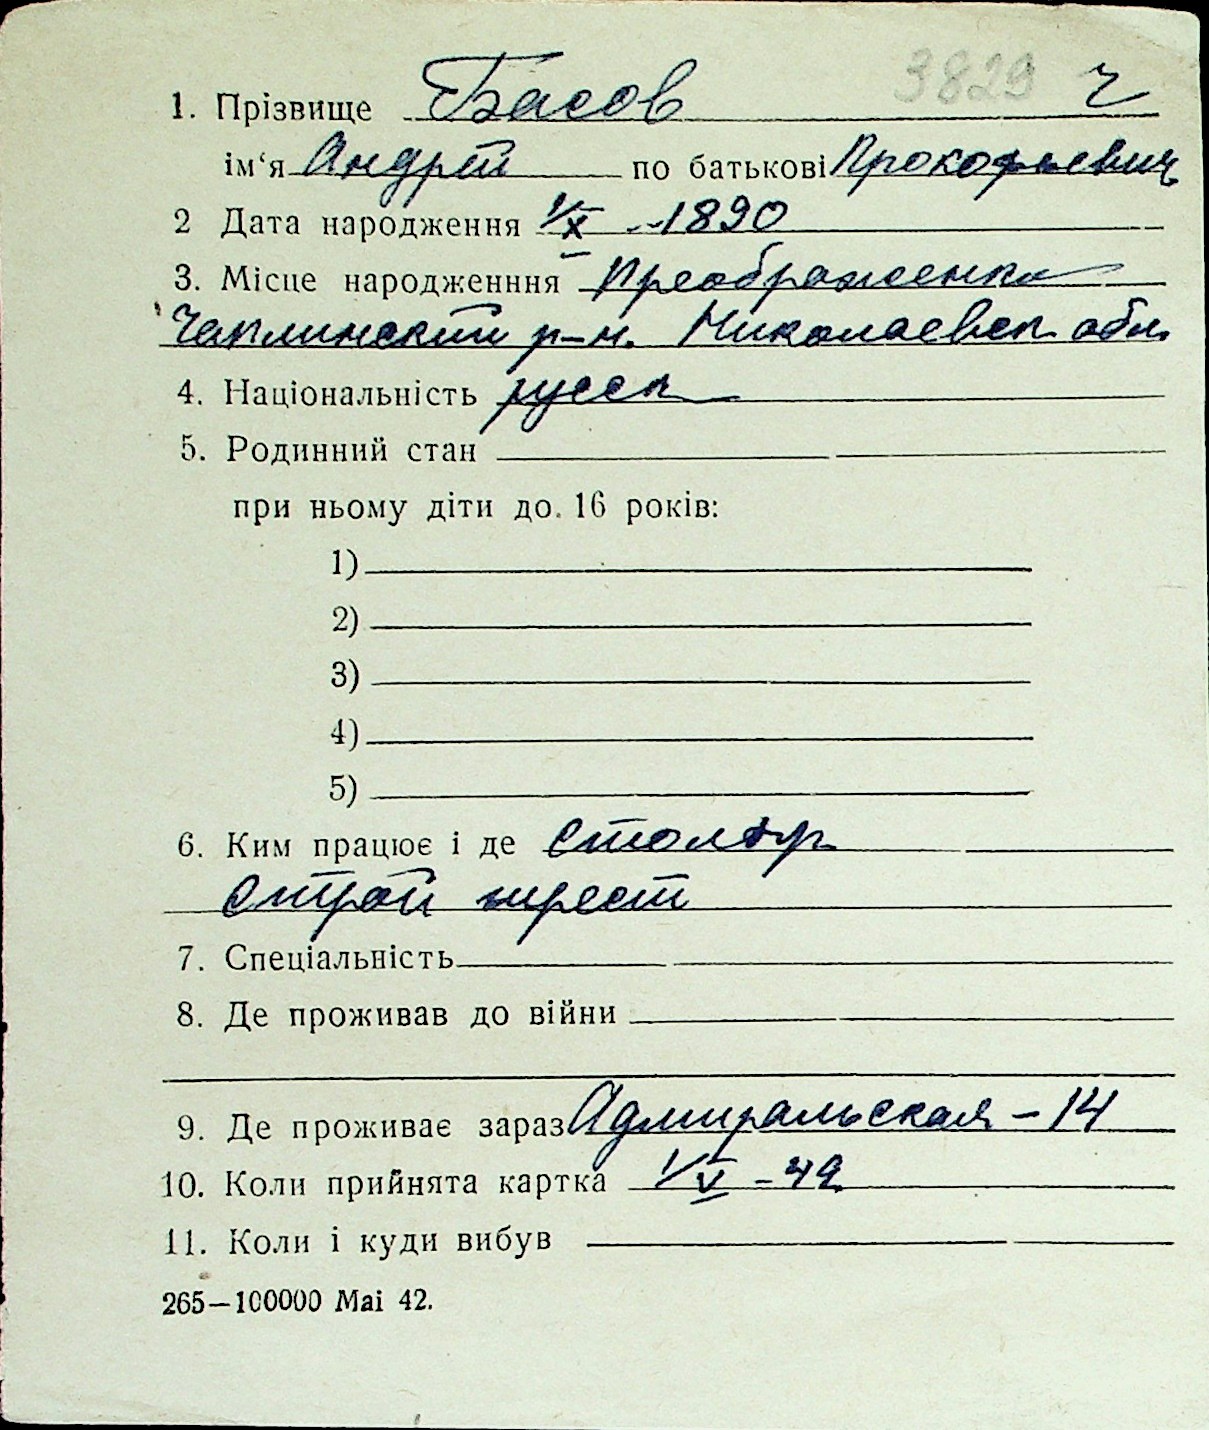 3829 Ч
1. Прізвище Басов
ім‘я Андрей по батькові Прокофьевич
2 Дата народження 1/X - 1890
3. Місце народженння Преображенка
Чаплинский р-н. Николаевск обл.
4. Національність русск
5. Родинний стан
при ньому діти до 16 років:
1)
2)
3)
4)
5)
6. Ким працює і де столяр
Строй трест
7. Спеціальність
8. Де проживав до війни
9. Де проживає зараз Адмиральская - 14
10. Коли прийнята картка 1/V - 42
11. Коли і куди вибув
265—100000 Маі 42.